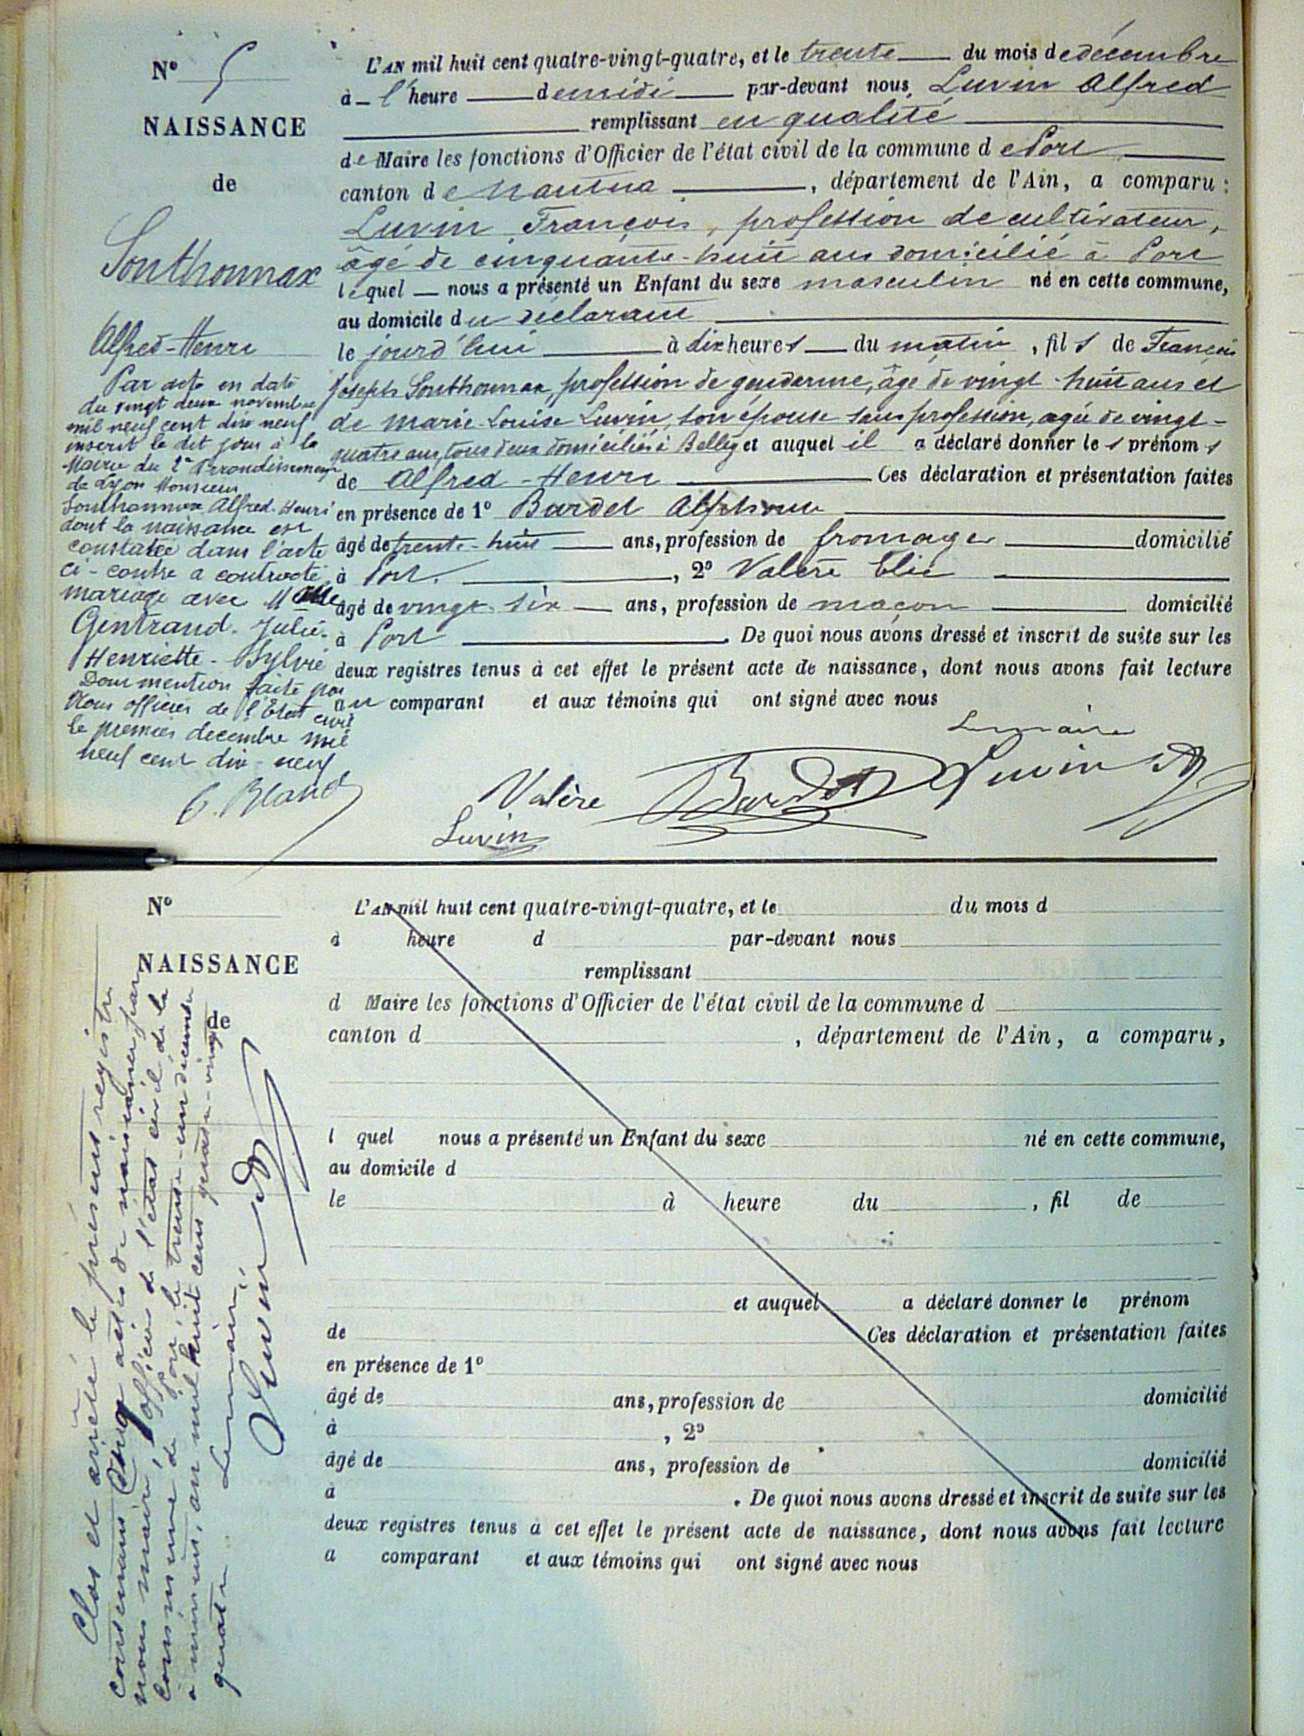 N° 5
NAISSANCE
de
Sonthonnax
Alfred-Henri
Par acte en date
du vingt deux novembre
mil neuf cent dix neuf
inscrit le dit jour à la
Mairie du 2e Arrondissement
de Lyon Monsieur
Sonthonnax Alfred-Henri
dont la naissance est
constatée dans l'acte
ci-contre a contracté
mariage avec Melle
Gentrand-Julie-
Henriette-Sylvie
Dont mention faite par
Nous officier de l'Etat civil
le premier decembre mil
neuf cent dix-neuf
L'AN mil huit cent quatre-vingt-quatre, et le trente du mois de décembre
à l'heure de midi par-devant nous, Luvin Alfred
remplissant en qualité
de Maire les fonctions d'Officier de l'état civil de la commune de Port
canton de Nantua, département de l'Ain, a comparu :
Luvin François, profession de cultivateur,
âgé de cinquante-huit ans domicilié à Port
lequel nous a présenté un Enfant du sexe masculin né en cette commune,
au domicile du déclarant
le jourd'hui à dix heures du matin, fils de François
Joseph Sonthonnax, profession de gendarme, âgé de vingt-huit ans et
de Marie Louise Luvin, son épouse sans profession, agée de vingt-
quatre ans, tous deux domiciliés à Belley et auquel il a déclaré donner les prénoms
de Alfred-Henri Ces déclaration et présentation faites
en présence de 1° Bardet Alphonse
âgé de trente-huit ans, profession de fromager domicilié
à Port, 2° Valère Elie
âgé de vingt-six ans, profession de maçon domicilié
à Port. De quoi nous avons dressé et inscrit de suite sur les
deux registres tenus à cet effet le présent acte de naissance, dont nous avons fait lecture
au comparant et aux témoins qui ont signé avec nous
Le maire
Valère Bardet Luvin
Luvin
N°
NAISSANCE
de
L'AN mil huit cent quatre-vingt-quatre, et le du mois d
à heure d par-devant nous
remplissant
d Maire les fonctions d'Officier de l'état civil de la commune d
canton d , département de l'Ain, a comparu,
l quel nous a présenté un Enfant du sexe né en cette commune,
au domicile d
le à heure du , fil de
et auquel a déclaré donner le prénom
de Ces déclaration et présentation faites
en présence de 1°
âgé de ans, profession de domicilié
à , 2°
âgé de ans, profession de domicilié
à . De quoi nous avons dressé et inscrit de suite sur les
deux registres tenus à cet effet le présent acte de naissance, dont nous avons fait lecture
a comparant et aux témoins qui ont signé avec nous
Clos et arrêté le présent registre
contenant cinq actes de naissance par
nous maire, officier de l'état civil de la
commune de Port, le trente-un décembre
à minuit, an mil huit cent quatre-vingt-
quatre. Le maire,
Luvin